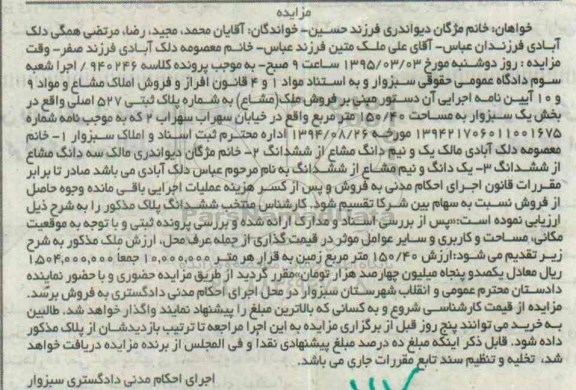 مزایده
خواهان: خانم مژگان دیواندری فرزند حسین- خواندگان: آقایان محمد، مجید، رضا، مرتضی همگی دلک
آبادی فرزندان عباس- آقای علی ملک متین فرزند عباس- خانم معصومه دلک آبادی فرزند صفر- وقت
مزایده : روز دوشنبه مورخ 1395/03/03 ساعت 9 صبح- به موجب پرونده کلاسه 940246 / اجرا شعبه
سوم دادگاه عمومی حقوقی سبزوار و به استناد مواد 1 و 4 قانون افراز و فروش املاک مشاع و مواد 9
و 10 آیین نامه اجرایی آن دستور مبنی بر فروش ملک(مشاع) به شماره پلاک ثبتی 527 اصلی واقع در
بخش یک سبزوار به مساحت 150/40 متر مربع واقع در خیابان سهراب سهراب 2 که به موجب نامه شماره
139421706011001675 مورخه 1394/08/26 اداره محترم ثبت اسناد و املاک سبزوار 1- خانم
معصومه دلک آبادی مالک یک و نیم دانگ مشاع از ششدانگ 2- خانم مژگان دیواندری مالک سه دانگ مشاع
از ششدانگ 3- یک دانگ و نیم مشاع از ششدانگ به نام مرحوم عباس دلک آبادی می باشد صادر تا برابر
مقررات قانون اجرای احکام مدنی به فروش و پس از کسر هزینه عملیات اجرایی باقی مانده وجوه حاصل
از فروش نسبت به سهام بین شرکا تقسیم شود. کارشناس منتخب ششدانگ پلاک مذکور را به شرح ذیل
ارزیابی نموده است:«پس از بررسی اسناد و مدارک ارائه شده و بررسی پرونده ثبتی و با توجه به موقعیت
مکانی، مساحت و کاربری و سایر عوامل موثر در قیمت گذاری از جمله عرف محل، ارزش ملک مذکور به شرح
زیر تقدیم می شود:ارزش 150/40 متر مربع زمین به قرار هر متر 10,000,000 جمعا 1,504,000,000
ریال معادل یکصدو پنجاه میلیون چهارصد هزار تومان»مقرر گردید از طریق مزایده حضوری و با حضور نماینده
دادستان محترم عمومی و انقلاب شهرستان سبزوار در محل اجرای احکام مدنی دادگستری به فروش برسد.
مزایده از قیمت کارشناسی شروع و به کسانی که بالاترین مبلغ را پیشنهاد نمایند واگذار خواهد شد. طالبین
به خرید می توانند پنج روز قبل از برگزاری مزایده به این اجرا مراجعه تا ترتیب بازدیدشان از پلاک مذکور
داده شود. قابل ذکر اینکه مبلغ ده درصد مبلغ پیشنهادی نقدا و فی المجلس از برنده مزایده دریافت خواهد
شد، تخلیه و تنظیم سند تابع مقررات جاری می باشد.
اجرای احکام مدنی دادگستری سبزوار